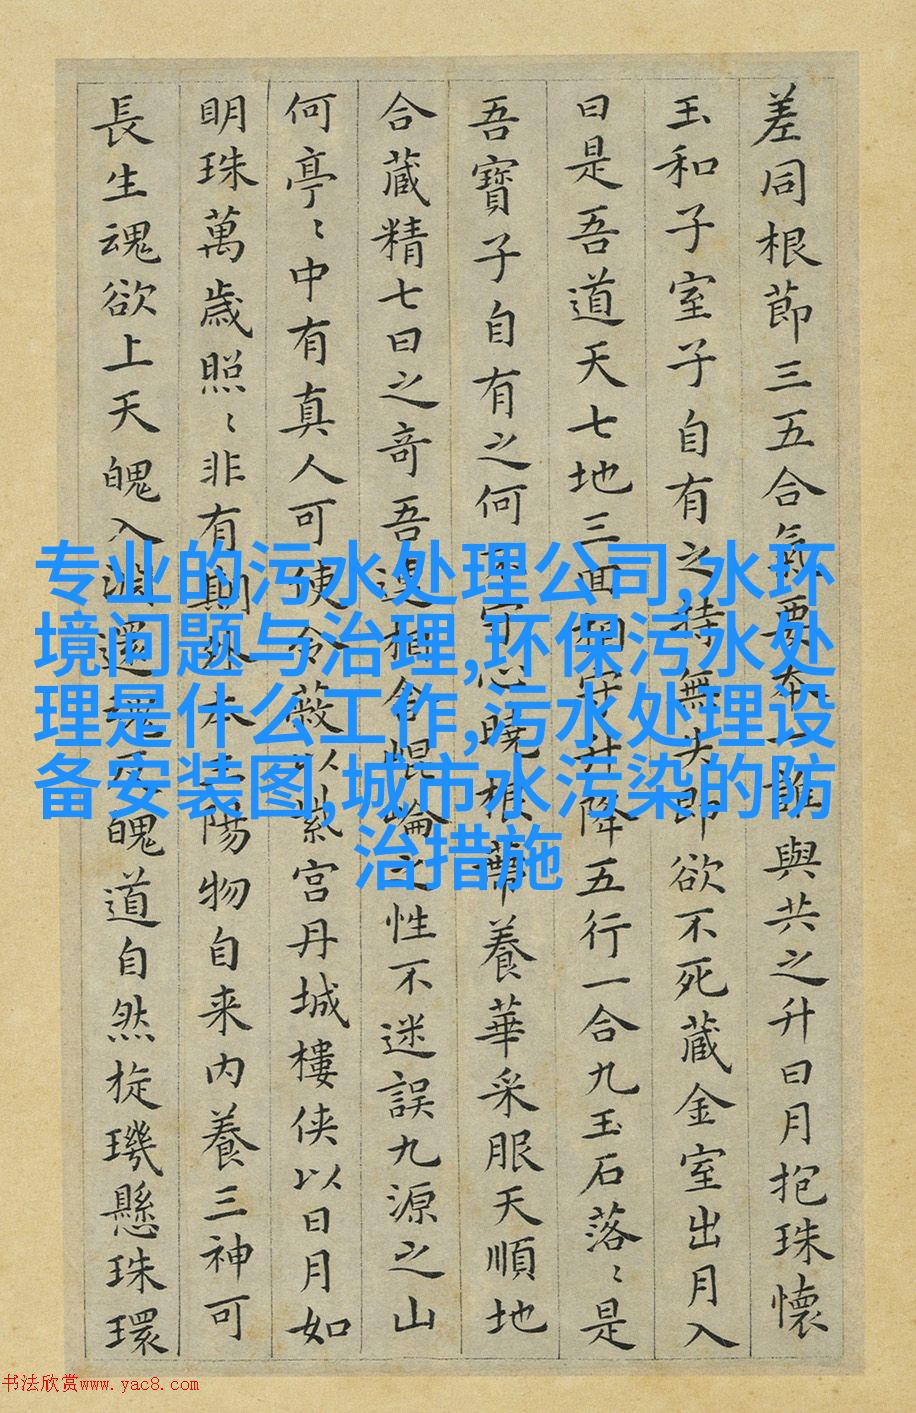 差同根節三五合氣要本一誰與共之升日月抱珠懷
玉和子室子自有之持無失即欲不死藏金室出月入
日是吾道天七地三回相守升降五行一合九玉石落〻是
吾寶子自有之何不守心曉根蒂養華采服天順地
合藏精七日之奇吾連相舍崐崘之性不迷誤九源之山
何亭〻中有真人可使令蔽以紫宮丹城樓俠以日月如
明珠萬歲照〻非有期外本三陽物自来内養三神可
長生魂欲上天魄入淵還魂反魄道自然旋璣懸珠環
专业的污水处理公司,水环
境问题与治理,环保污水处
理是什么工作,污水处理设
备安装图,城市水污染的防
治措施
书法欣赏www.yac8.com